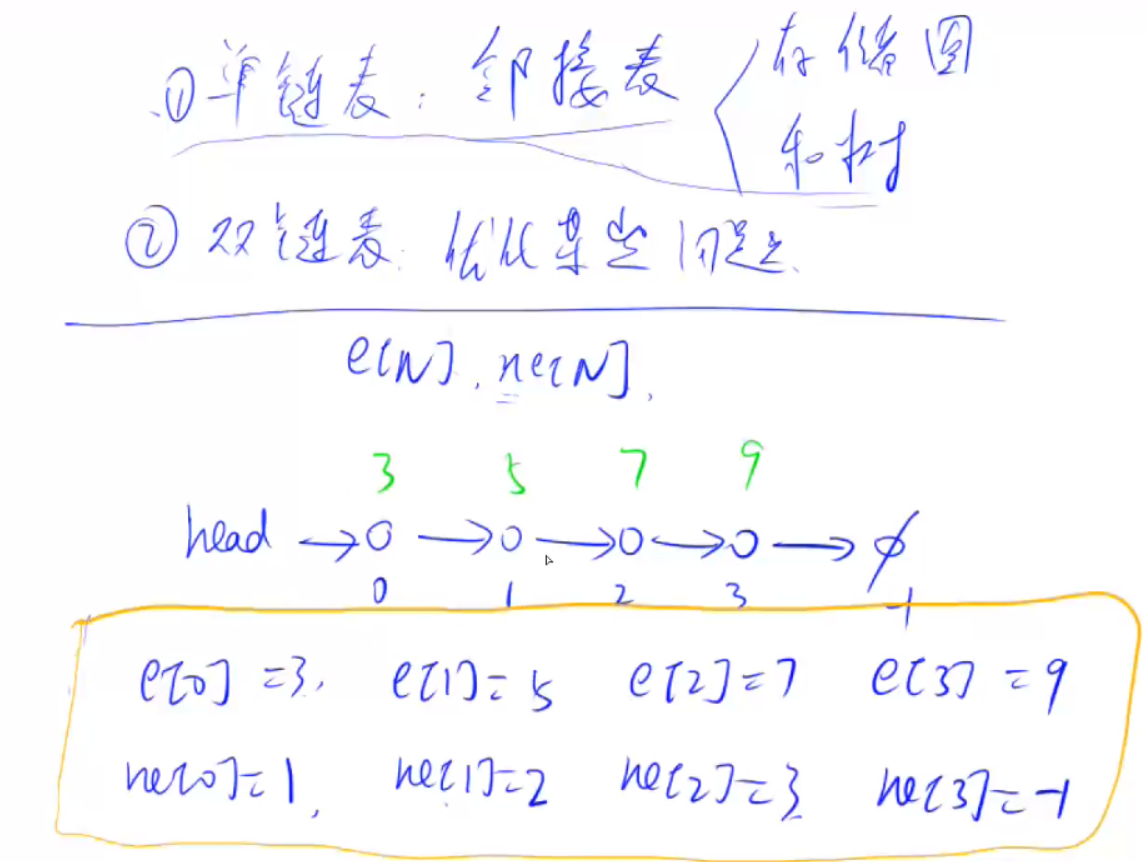 ① 单链表：邻接表 存储图
和树
② 双链表：优化某些问题.
e[N], ne[N],
3 5 7 9
head → O → O → O → O → ∅
0 1 2 3 -1
e[0]=3, e[1]=5 e[2]=7 e[3]=9
ne[0]=1, ne[1]=2 ne[2]=3 ne[3]=-1